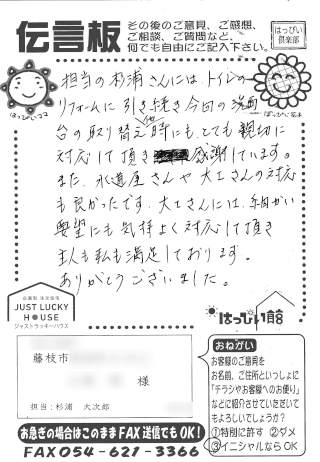 伝言板
その後のご意見、ご感想、
ご相談、ご質問など、
何でも自由にご記入下さい。
はっぴい
倶楽部
担当の杉浦さんには、トイレの
リフォームに引き続き今回の洗面
台の取り替え時にも、とても親切に
対応して頂き感謝しています。
また、水道屋さんや大工さんの対応
も良かったです。大工さんには、細かい
要望にも気持よく対応して頂き
主人も私も満足しております。
ありがとうございました。
はっぴいママ
はっぴい花子
JUST LUCKY
HOUSE
ジャストラッキーハウス
はっぴい館
藤枝市
様
担当:杉浦 大次郎
おねがい
お客様のご意見を
お名前、ご住所といっしょに
「チラシやお客様へのお便り」
などに紹介させていただいて
もよろしいでしょうか?
①特別に許す ②ダメ
③イニシャルならOK
お急ぎの場合はこのままFAX送信でもOK!
FAX054-621-3366